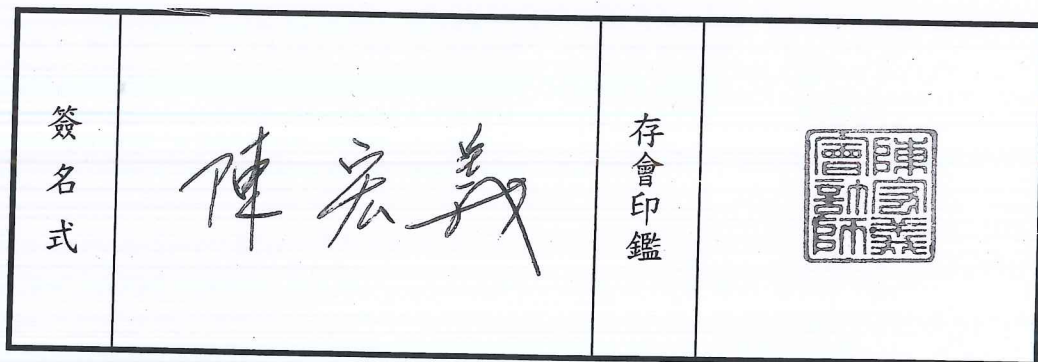 簽名式
陳宏義
存會印鑑
陳宏義
會計師